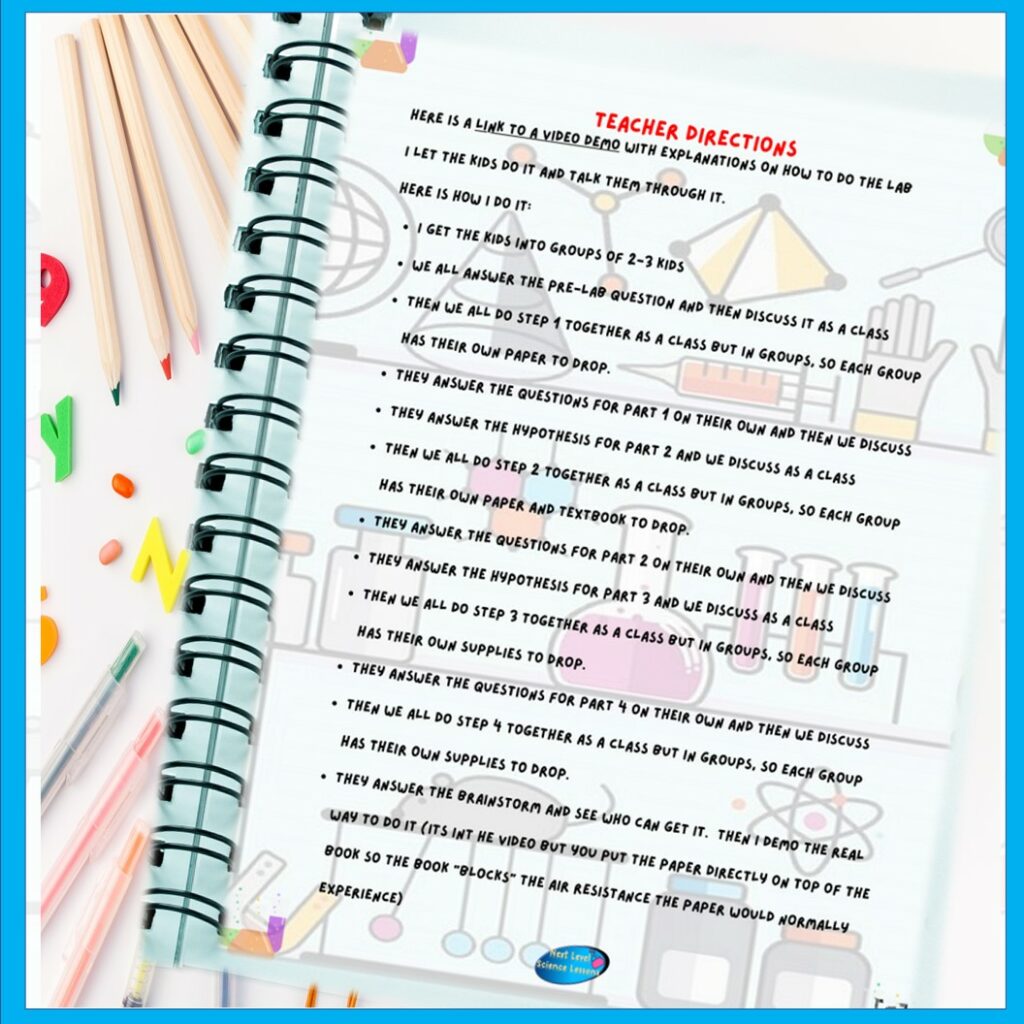 TEACHER DIRECTIONS
HERE IS A LINK TO A VIDEO DEMO WITH EXPLANATIONS ON HOW TO DO THE LAB
I LET THE KIDS DO IT AND TALK THEM THROUGH IT.
HERE IS HOW I DO IT:
• I GET THE KIDS INTO GROUPS OF 2-3 KIDS
• WE ALL ANSWER THE PRE-LAB QUESTION AND THEN DISCUSS IT AS A CLASS
• THEN WE ALL DO STEP 1 TOGETHER AS A CLASS BUT IN GROUPS, SO EACH GROUP
HAS THEIR OWN PAPER TO DROP.
• THEY ANSWER THE QUESTIONS FOR PART 1 ON THEIR OWN AND THEN WE DISCUSS
• THEY ANSWER THE HYPOTHESIS FOR PART 2 AND WE DISCUSS AS A CLASS
• THEN WE ALL DO STEP 2 TOGETHER AS A CLASS BUT IN GROUPS, SO EACH GROUP
HAS THEIR OWN PAPER AND TEXTBOOK TO DROP.
• THEY ANSWER THE QUESTIONS FOR PART 2 ON THEIR OWN AND THEN WE DISCUSS
• THEY ANSWER THE HYPOTHESIS FOR PART 3 AND WE DISCUSS AS A CLASS
• THEN WE ALL DO STEP 3 TOGETHER AS A CLASS BUT IN GROUPS, SO EACH GROUP
HAS THEIR OWN SUPPLIES TO DROP.
• THEY ANSWER THE QUESTIONS FOR PART 4 ON THEIR OWN AND THEN WE DISCUSS
• THEN WE ALL DO STEP 4 TOGETHER AS A CLASS BUT IN GROUPS, SO EACH GROUP
HAS THEIR OWN SUPPLIES TO DROP.
• THEY ANSWER THE BRAINSTORM AND SEE WHO CAN GET IT. THEN I DEMO THE REAL
WAY TO DO IT (ITS INT HE VIDEO BUT YOU PUT THE PAPER DIRECTLY ON TOP OF THE
BOOK SO THE BOOK "BLOCKS" THE AIR RESISTANCE THE PAPER WOULD NORMALLY
EXPERIENCE)
Next Level
Science Lessons
Y
N